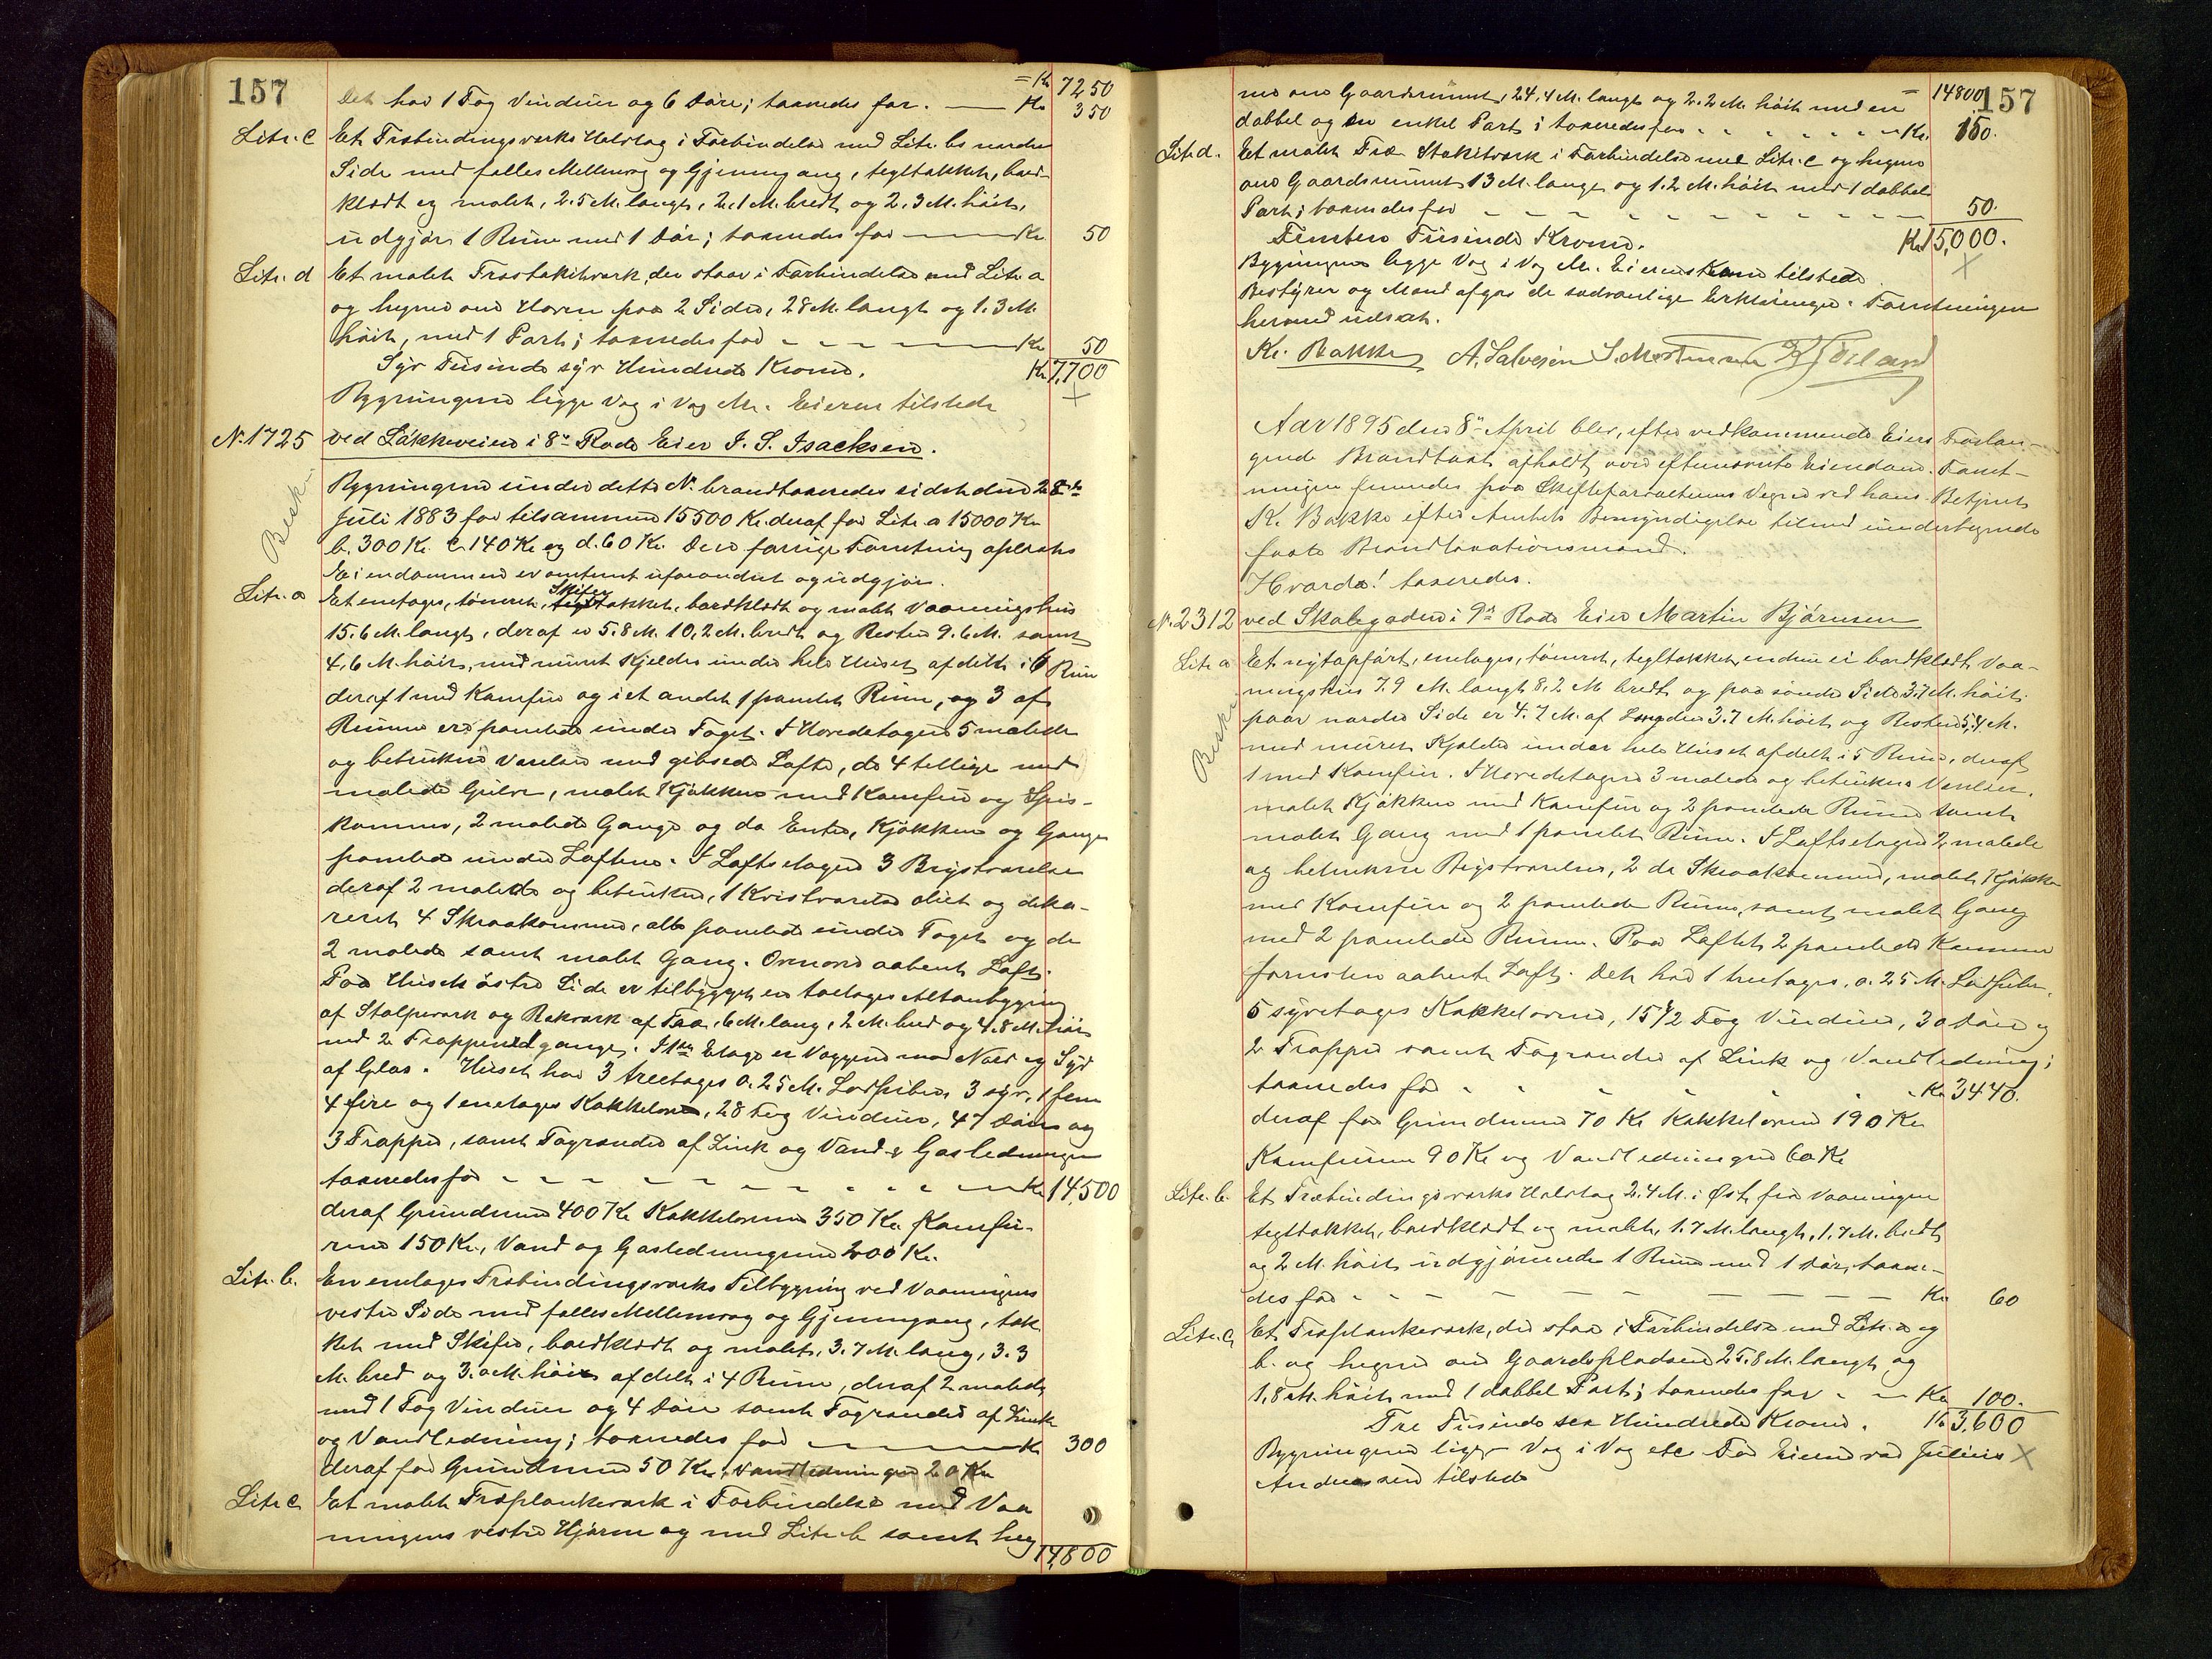 157
= Kr 7250
Det har 1 Fag Vinduer og 6 Döre; taxeredes for. — Kr 350
Litr. C Et Træbindingsverks Halvtag i Forbindelse med Litr. bs nordre
Side med fælles Mellemvæg og Gjennemgang, tegltækket, bord-
klædt og malet, 2.5 M. langt, 2.1 M. bredt og 2.3 M. höit,
udgjör 1 Rum med 1 Dör; taxeredes for — Kr 50
Litr. d Et malet Træstakitværk, der staar i Forbindelse med Litr. a
og hegner om Haven paa 2 Sider, 28 M. langt og 1.3 M.
höit, med 1 Port; taxeredes for — Kr 50
Syv Tusinde syv Hundrede Kroner. Kr 7,700
Bygningerne ligge Væg i Væg M. Eieren tilstede
N. 1725 ved Lökkeveien i 8de Rode Eier I. S. Isachsen.
Besk.
Bygningerne under dette N. brandtaxeredes sidst den 28de
Juli 1883 for tilsammen 15500 Kr. deraf for Litr. a 15000 Kr
b. 300 Kr. c. 140 Kr og d. 60 Kr. Den forrige Forretning oplæstes
Eiendommen er omtrent uforandret og udgjör.
Litr. a Et enetages, tömret, Skifertækket, bordklædt og malet Vaaningshus
15.6 M. langt, deraf er 5.8 M. 10,2 M. bredt og Resten 9.6 M. samt
4,6 M. höit, med muret Kjelder under hele Huset afdelt i 6 Rum
deraf 1 med Komfur og i et andet 1 panelet Rum, og 3 af
Rummene er panelede under Taget. I Hovedetagen 5 malede
og betrukne Værelser med gibsede Lofte, de 4 tillige med
malede Gulve, malet Kjökken med Komfur og Spis-
kammer, 2 malede Gange og da Entre, Kjökken og Gangen
panelede under Loftene. I Loftsetagen 3 Brystværelser
deraf 2 malede og betrukne, 1 Kvistværelse oliet og deko-
reret 4 Skraakammere, alle panelede under Taget og de
2 malede samt malet Gang. Ovenover aabent Loft.
Paa Husets östre Side er tilbygget en toetages Altanbygning
af Stolpeverk og Rekverk af Træ, 6 M. lang, 2 M. bred og 4.8 M. höi
med 2 Trappeudgange. I 1ste Etage er Væggene mod Nord og Syd
af Glas. Huset har 3 treetages a. 25 M. Lodpiber, 3 syv, 1 fem
4 fire og 1 enetages Kakkelovn, 28 Fag Vinduer, 47 Döre og
3 Trapper, samt Tagrender af Zink og Vand & Gasledninger
taxeredes for — Kr 14,500
deraf Grundmur 400 Kr Kakkelovnene 350 Kr. Komfu-
rene 150 Kr., Vand og Gasledningerne 200 Kr.
Litr. b. En enetages Træbindingsverks Tilbygning ved Vaaningens
vestre Side med fælles Mellemvæg og Gjennemgang, tæk-
ket med Skifer, bordklædt og malet, 3.7 M. lang, 3.3
M. bred og 3.0 M. höi afdelt i 4 Rum, deraf 2 malede
med 1 Fag Vinduer og 4 Döre samt Tagrender af Zink
og Vandledning; taxeredes for — Kr 300
deraf for Grundmuren 50 Kr., Vandledningen 20 Kr
Litr. c Et malet Træplankeverk i Forbindelse med Vaa-
ningens vestre Hjörne og med Litr. b samt heg-
14,800
157
14800
ner om Gaardsrummet, 24,4 M. langt og 2.2 M. höit med en
dobbel og en enkel Port; taxeredes for — Kr. 150.
Litr d. Et malet Træ Stakitværk i Forbindelse med Litr. c og hegner
om Gaardsrummet 13 M. langt og 1.2 M. höit med 1 dobbel
Port; taxeredes for — 50.
Femten Tusinde Kroner. Kr 15,000.
Bygningerne ligge Væg i Væg M. Eierens Kone tilstede.
Bestyrer og Mænd afgav de sædvanlige Erklæringer. Forretningen
hermed udsat.
Kr. Bakke A. Salvesen S. Mortensen
Aar 1895 den 8de April blev, efter vedkommende Eiers Forlan-
gende Brandtaxt afholdt over efternævnte Eiendom. Forret-
ningen fremmedes paa Skifteforvalterens Vegne ved hans Betjent
K. Bakke efter Amtets Bemyndigelse tilmed undertegnede
faste Brandtaxationsmænd.
Hvorda! taxeredes.
N. 2312 ved Skolegaden i 9de Rode Eier Martin Björnsen
Besk.
Litr a Et nyt opfört, enetages, tömret, tegltækket, endnu ei bordklædt Vaa-
ningshus 7.9 M. langt 8,2 M bredt og paa söndre Side 3.7 M. höit.
paa nordre Side er 4.7 M. af Længden 3.7 M. höit og Resten 5,4 M.
med muret Kjelder under hele Huset afdelt i 5 Rum, deraf
1 med Komfur. I Hovedetagen 3 malede og betrukne Værelser.
malet Kjökken med Komfur og 2 panelede Rum samt
malet Gang med 1 panelet Rum. I Loftsetagen 2 malede
og betrukne Brystværelser, 2 do Skraakammere, malet Kjökken
med Komfur og 2 panelede Rum, samt malet Gang
med 2 panelede Rum. Paa Loftet 2 panelede Kammere
foruden aabent Loft. Det har 1 treetages, a. 25 M. Lodpibe,
5 syvetages Kakkelovne, 15 1/2 Fag Vinduer, 30 Döre og
2 Trapper samt Tagrender af Zink og Vandledning;
taxeredes for — Kr 3440.
deraf for Grundmuren 70 Kr Kakkelovnene 190 Kr
Komfurene 90 Kr og Vandledningen 60 Kr
Litr. b. Et Træbindingsverks Halvtag 2.4 M. i Öst fra Vaaningen
tegltækket, bordklædt og malet, 1.7 M. langt, 1.7 M. bredt
og 2 M. höit udgjörende 1 Rum med 1 Dör, taxere-
des for — Kr 60
Litr. c Et Træplankeverk, der staar i Forbindelse med Litr. a og
b. og hegner om Gaardspladsen 25.8 M. langt og
1,8 M. höit med 1 dobbel Port; taxeredes for — Kr 100.
Tre Tusinde sex Hundrede Kroner. Kr 3,600
Bygningerne ligge Væg i Væg etc. For Eieren var Julius
Andreassen tilstede